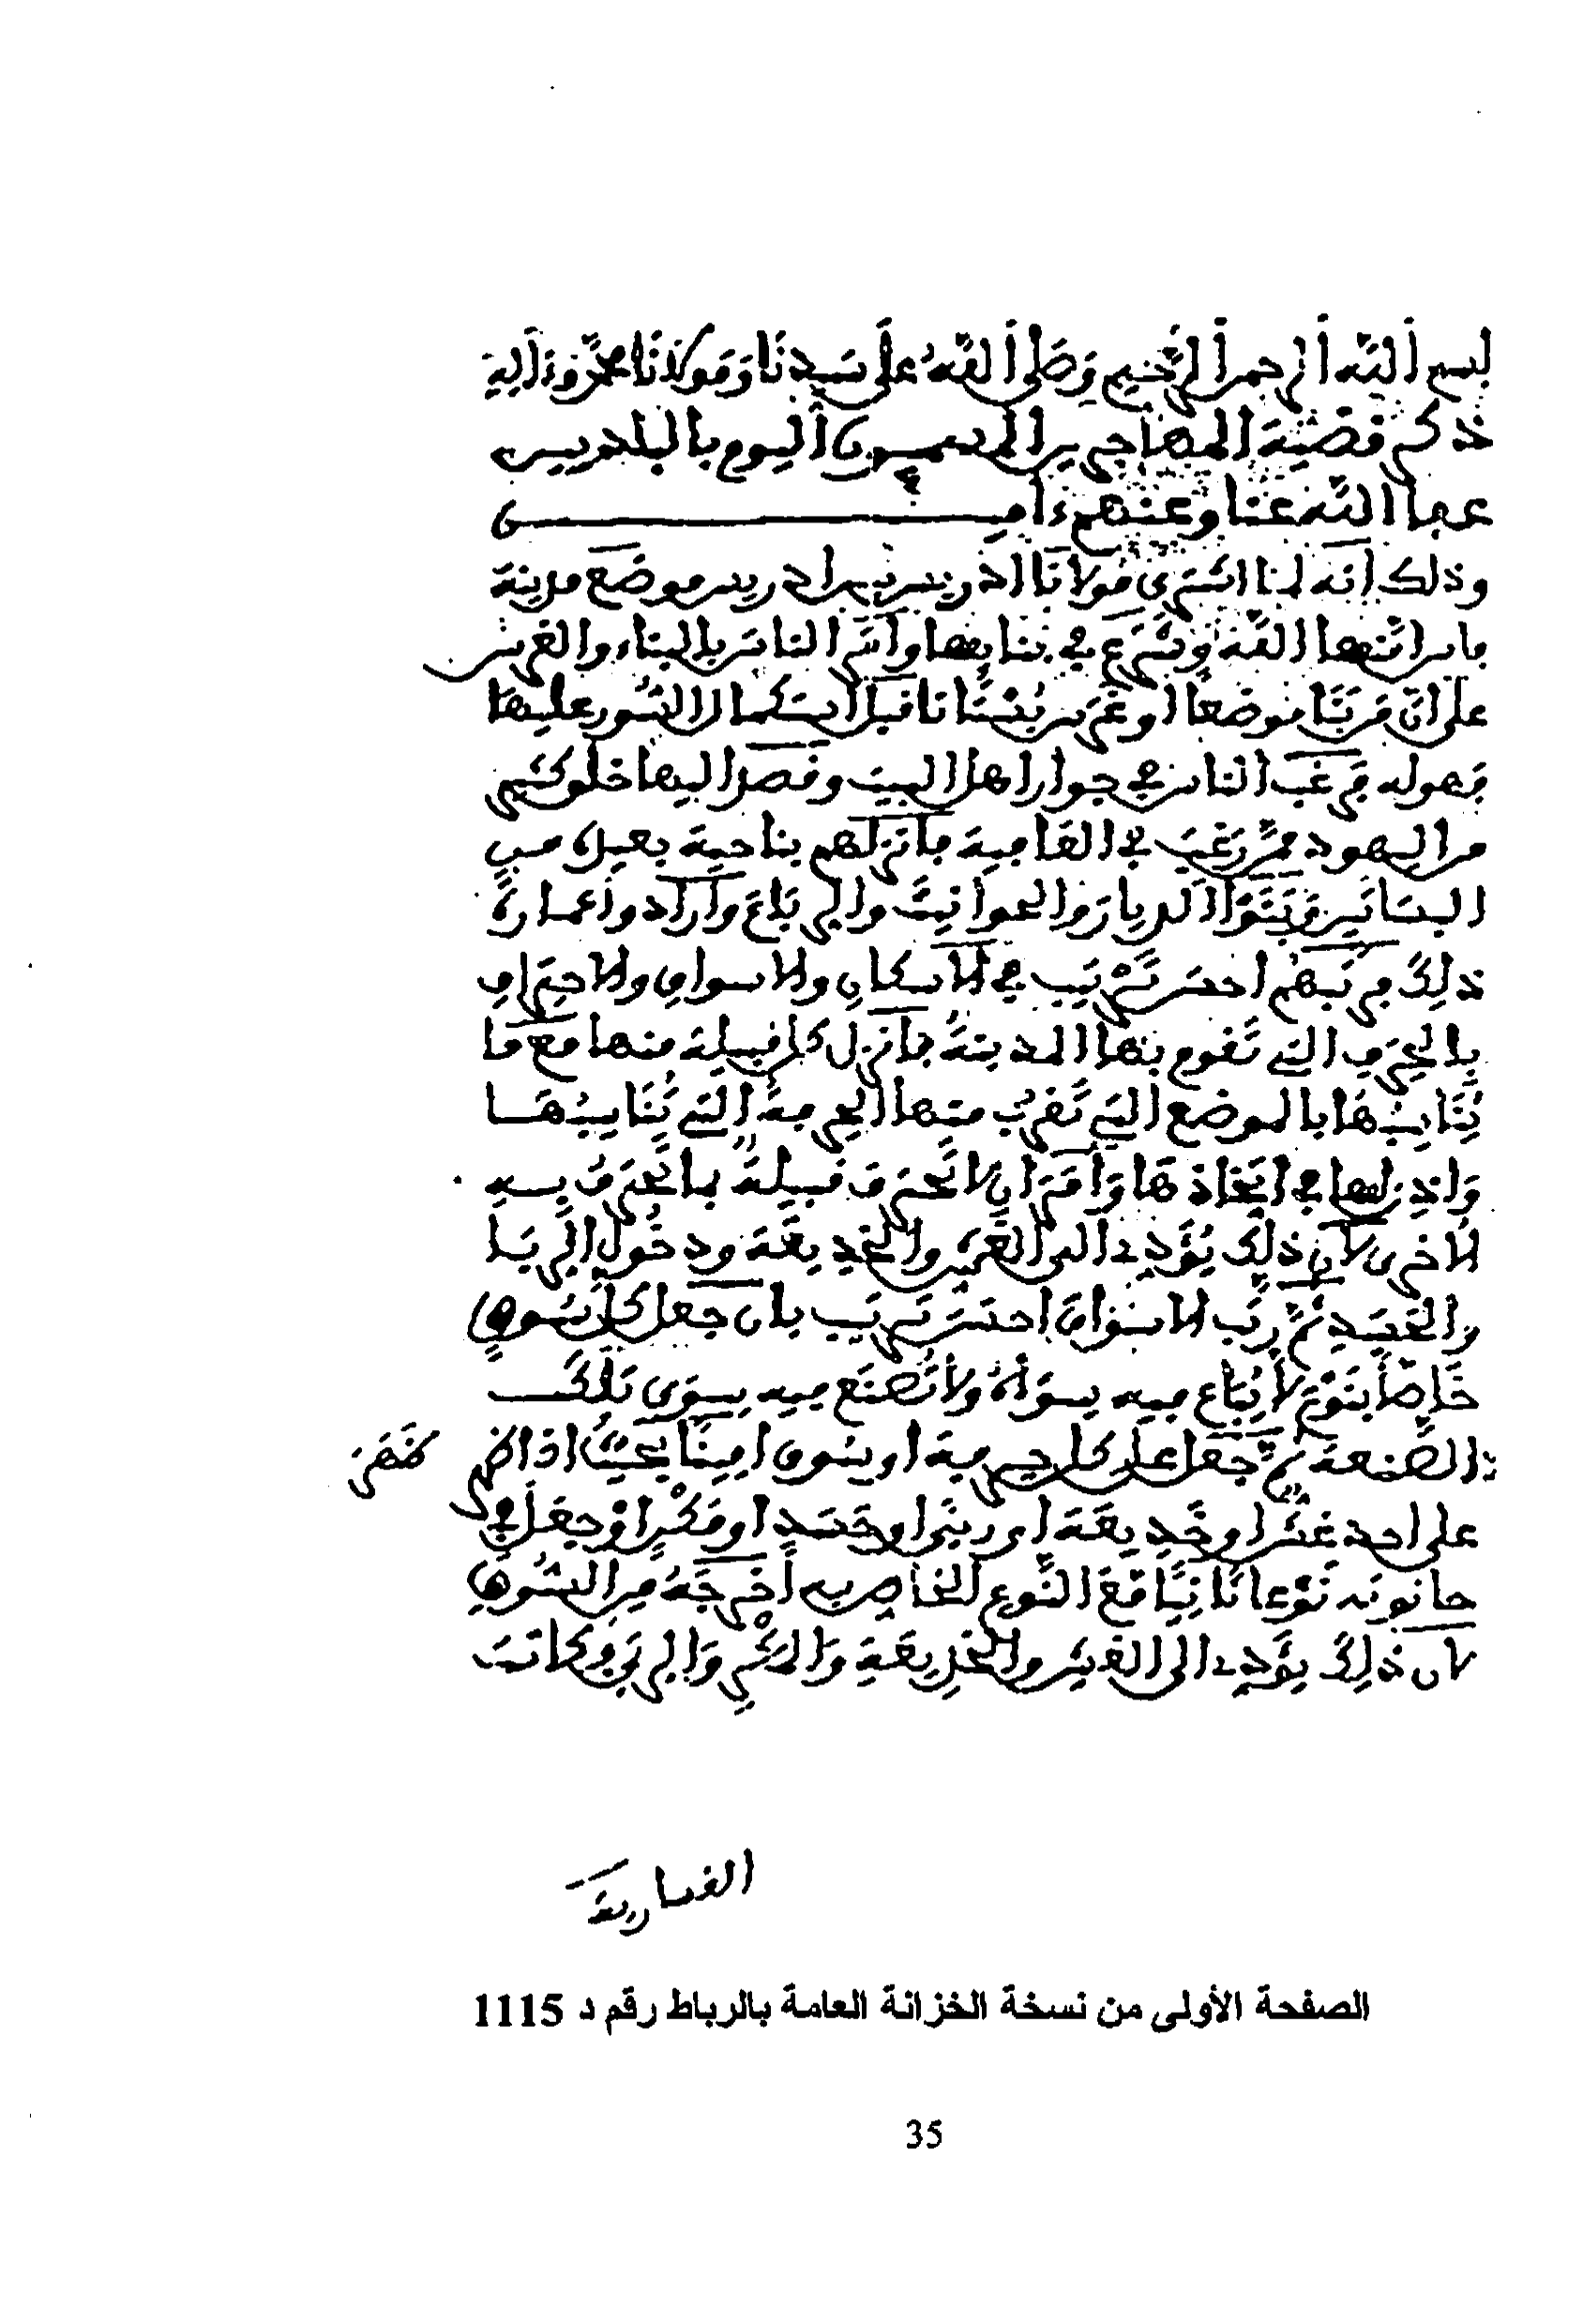 بسم الله الرحمن الرحيم وصلى الله على سيدنا ومولانا محمد وءاله
ذكر قضية المهاجرين المسمون اليوم بالبلديين
عفا الله عنا وعنهم ءامين
وذلك أنه لما اشترى مولانا ادريس بن ادريس موضع مدينة
فاس امنها الله وشرع في بنايها وامر الناس بالبناء والغرس
على ان من بنا موضعا او غرس بستانا قبل استكمال السور عليها
فهو له فرغب الناس في جوار اهل البيت وقصد اليها خلق كثير
من اليهود ممن رغب في العافية فانزلهم بناحية بعيدة من
البساتين وبنوا الديار والحوانيت والرباع واراد واعمارة
ذلك فرتبهم احسن ترتيب في الاسكان والاسواق والاحتراف
بالحرف التي تقوم بها المدينة فانزل كل قبيلة منها مع ما
يناسبها بالموضع التي تقرب منها الحرفة التي تناسبها
واذن لها في اتخاذها وامر ان لا تحترف قبيلة بما تحترف به
الاخرى لان ذلك يؤدي الى الغش والخديعة ودخول الربا
والحسد ثم رتب الاسواق احسن ترتيب بان جعل كل سوق
خاصا بنوع لا يباع فيه سواه ولا تصنع فيه سوى تلك
الصنعة ثم جعل على كل حرفة او سوق امينا بحيث اذا ظهر
على احد غشا او خديعة او ربا او حسدا او مكرا او جعل في
حانوته نوعا ثانيا مع النوع الخاص به أخرجه من السوق
لان ذلك يؤدي الى الغش والخديعة والمكر والربى وكانت
الصفحة الأولى من نسخة الخزانة العامة بالرباط رقم د 1115
35